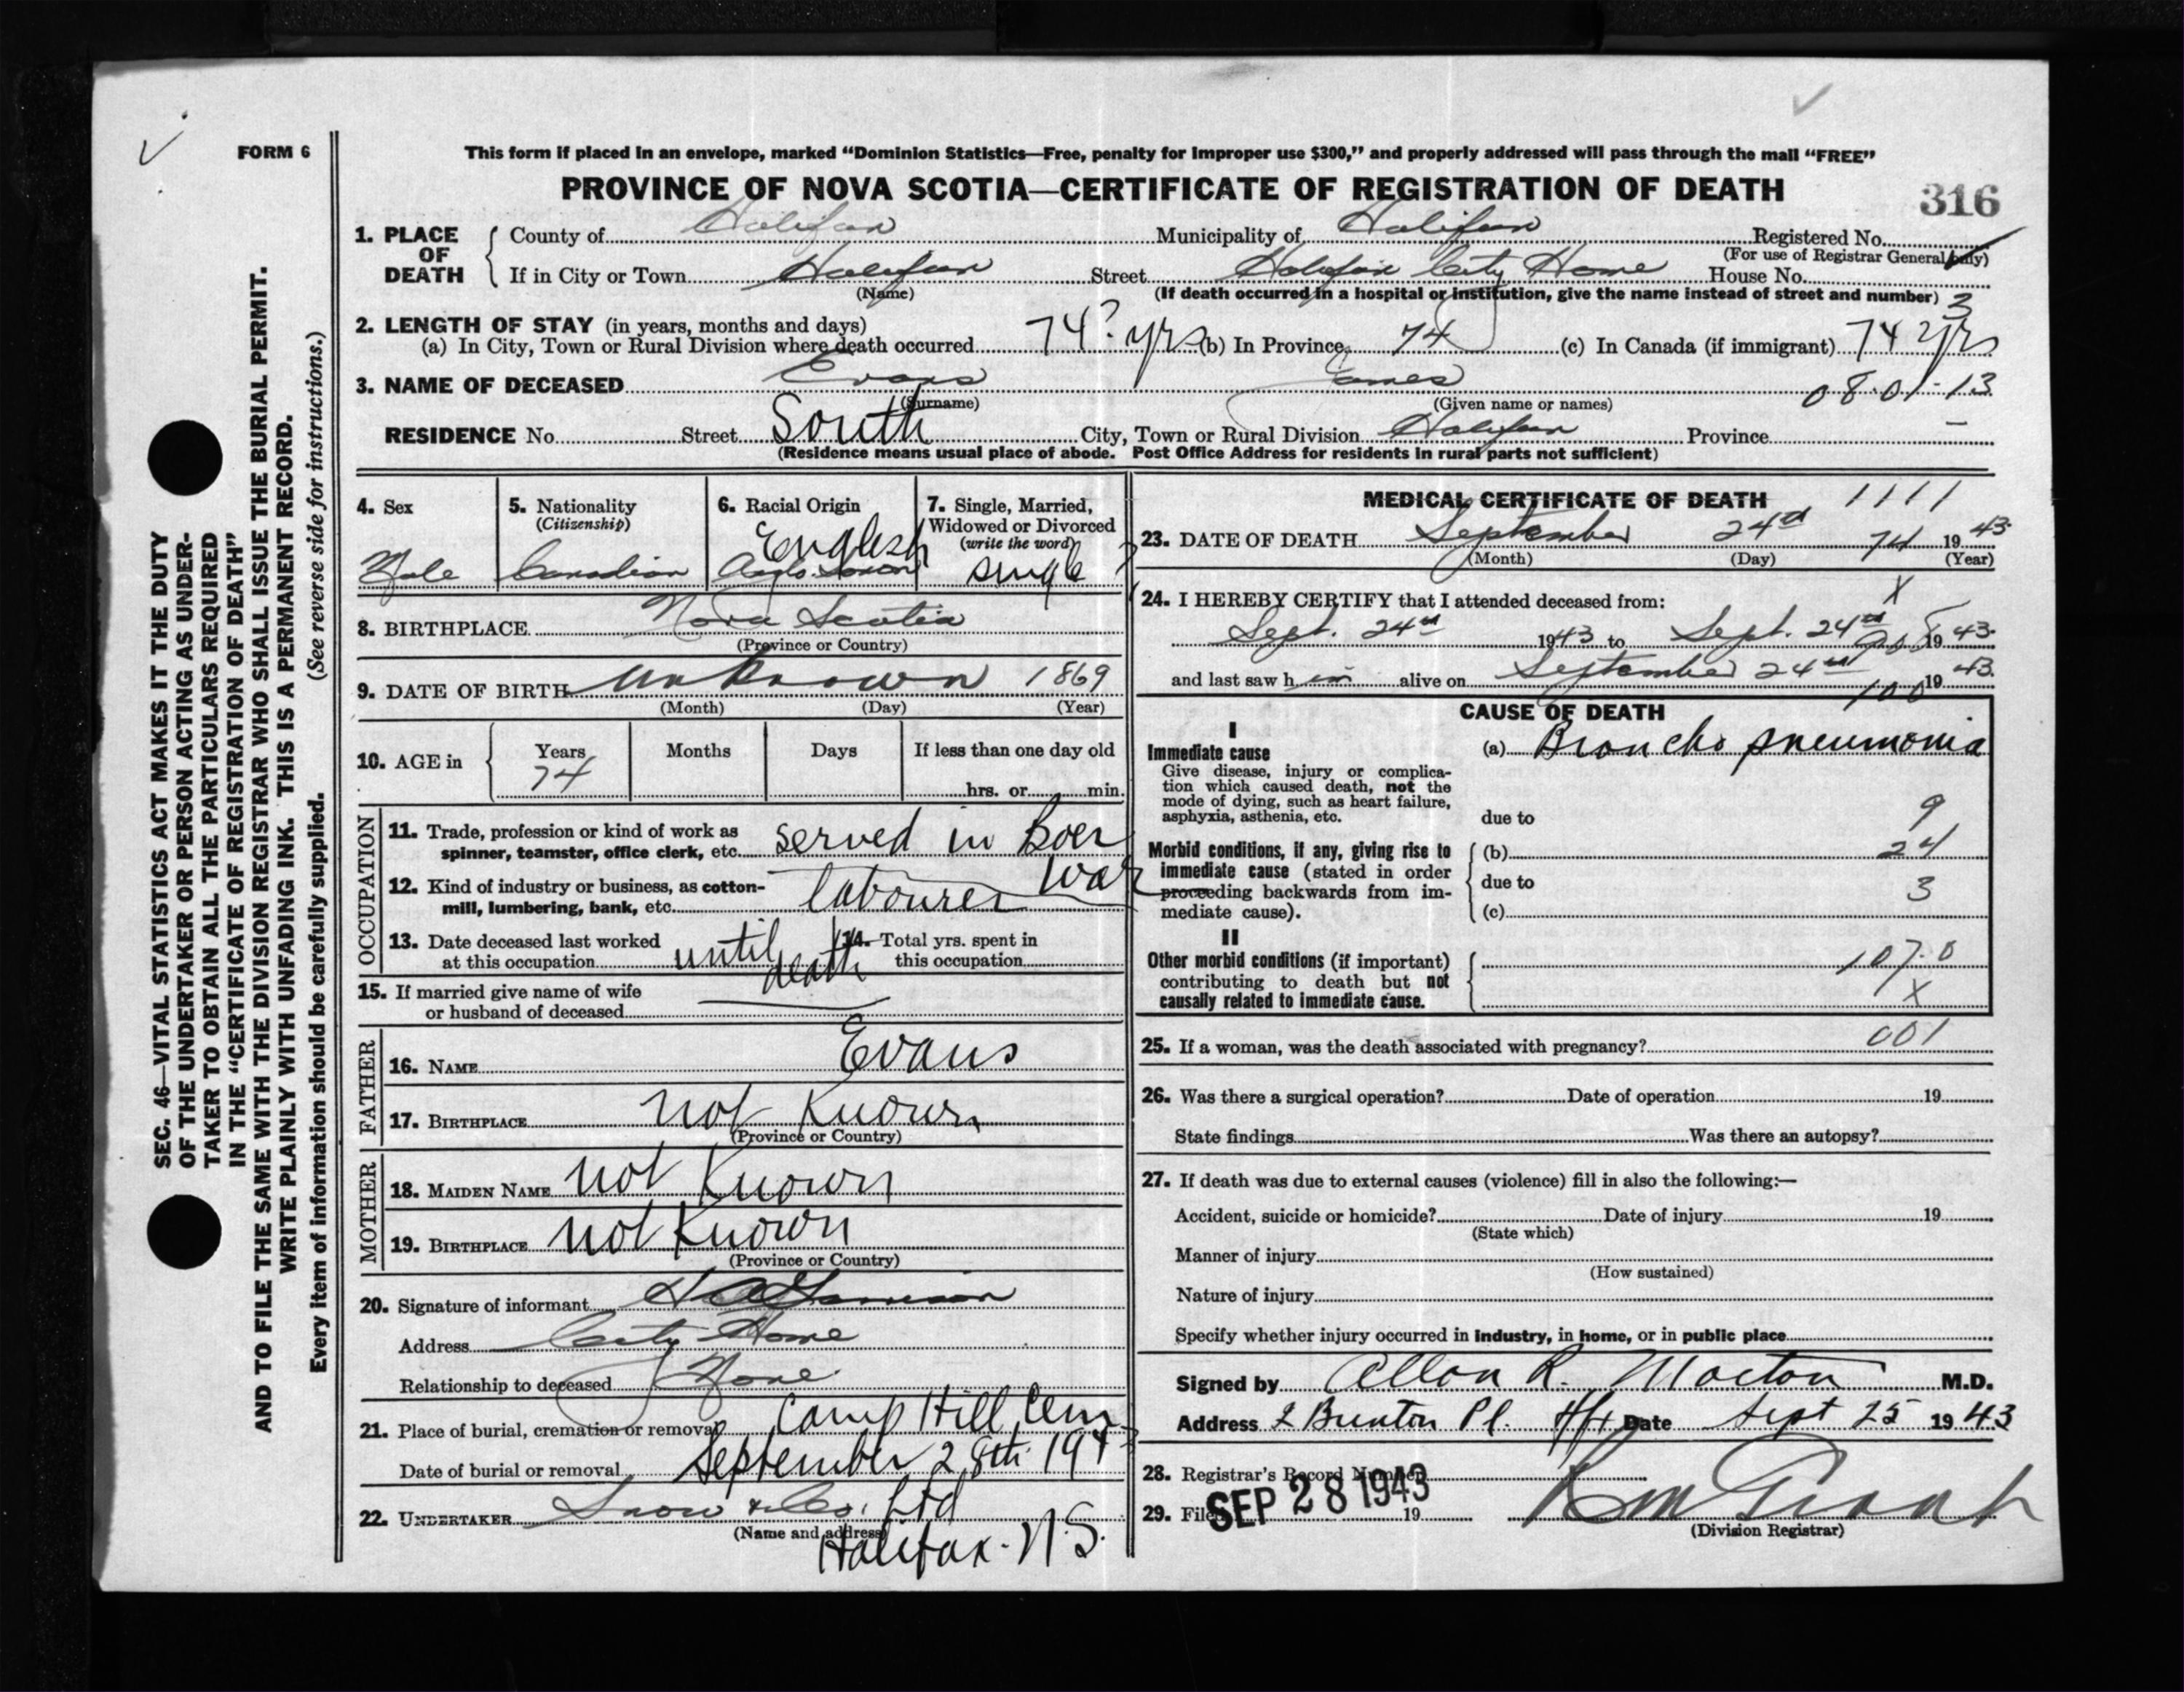 FORM 6
This form if placed in an envelope, marked “Dominion Statistics—Free, penalty for improper use $300,” and properly addressed will pass through the mail “FREE”
PROVINCE OF NOVA SCOTIA—CERTIFICATE OF REGISTRATION OF DEATH
316
1. PLACE OF DEATH
County of Halifax Municipality of Halifax Registered No.
(For use of Registrar General only)
If in City or Town Halifax Street Halifax City Home House No.
(Name) (If death occurred in a hospital or institution, give the name instead of street and number) 3
2. LENGTH OF STAY (in years, months and days)
(a) In City, Town or Rural Division where death occurred 74? yrs (b) In Province 74 (c) In Canada (if immigrant) 74 yrs
3. NAME OF DECEASED Evans James 08-01-13
(Surname) (Given name or names)
RESIDENCE No. Street South City, Town or Rural Division Halifax Province —
(Residence means usual place of abode. Post Office Address for residents in rural parts not sufficient)
4. Sex
Male
5. Nationality
(Citizenship)
Canadian
6. Racial Origin
English
Anglo-Saxon
7. Single, Married,
Widowed or Divorced
(write the word)
single
8. BIRTHPLACE Nova Scotia
(Province or Country)
9. DATE OF BIRTH unknown 1869
(Month) (Day) (Year)
10. AGE in Years Months Days If less than one day old
74
hrs. or min.
OCCUPATION
11. Trade, profession or kind of work as
spinner, teamster, office clerk, etc. served in Boer
War
12. Kind of industry or business, as cotton-
mill, lumbering, bank, etc. labourer
13. Date deceased last worked
at this occupation until death
14. Total yrs. spent in
this occupation
15. If married give name of wife
or husband of deceased
FATHER
16. NAME Evans
17. BIRTHPLACE not Known
(Province or Country)
MOTHER
18. MAIDEN NAME not Known
19. BIRTHPLACE not Known
(Province or Country)
20. Signature of informant
Address City Home
Relationship to deceased None
21. Place of burial, cremation or removal Camp Hill Cem
Date of burial or removal September 28th 194
22. UNDERTAKER Snow & Co. Ltd
(Name and address)
Halifax. N.S.
MEDICAL CERTIFICATE OF DEATH 1111
23. DATE OF DEATH September 24th 74 1943
(Month) (Day) (Year)
24. I HEREBY CERTIFY that I attended deceased from: X
Sept. 24th 1943 to Sept. 24th 1943
and last saw h im alive on September 24th 1943.
100
CAUSE OF DEATH
I
Immediate cause
Give disease, injury or complica-
tion which caused death, not the
mode of dying, such as heart failure,
asphyxia, asthenia, etc.
(a) Broncho pneumonia
due to 9
Morbid conditions, if any, giving rise to
immediate cause (stated in order
proceeding backwards from im-
mediate cause).
(b) 24
due to 3
(c)
II
Other morbid conditions (if important)
contributing to death but not
causally related to immediate cause.
107.0
X
25. If a woman, was the death associated with pregnancy? 001
26. Was there a surgical operation? Date of operation 19
State findings Was there an autopsy?
27. If death was due to external causes (violence) fill in also the following:—
Accident, suicide or homicide? Date of injury 19
(State which)
Manner of injury
(How sustained)
Nature of injury
Specify whether injury occurred in industry, in home, or in public place
Signed by Allan R. Morton M.D.
Address 2 Brunton Pl. Hfx Date Sept 25 1943
28. Registrar's Record Number
29. Filed SEP 28 1943 19
(Division Registrar)
SEC. 46—VITAL STATISTICS ACT MAKES IT THE DUTY
OF THE UNDERTAKER OR PERSON ACTING AS UNDER-
TAKER TO OBTAIN ALL THE PARTICULARS REQUIRED
IN THE “CERTIFICATE OF REGISTRATION OF DEATH”
AND TO FILE THE SAME WITH THE DIVISION REGISTRAR WHO SHALL ISSUE THE BURIAL PERMIT.
WRITE PLAINLY WITH UNFADING INK. THIS IS A PERMANENT RECORD.
Every item of information should be carefully supplied. (See reverse side for instructions.)